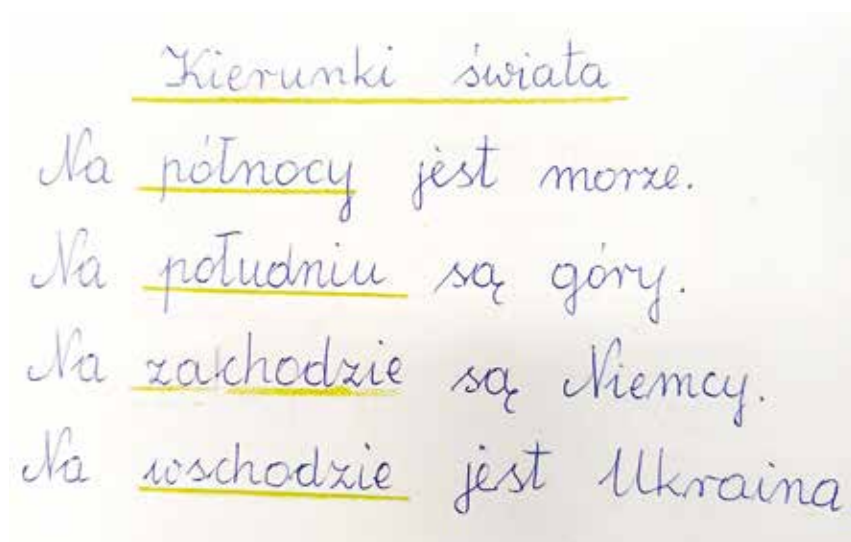 Kierunki świata
Na północy jest morze.
Na południu są góry.
Na zachodzie są Niemcy.
Na wschodzie jest Ukraina